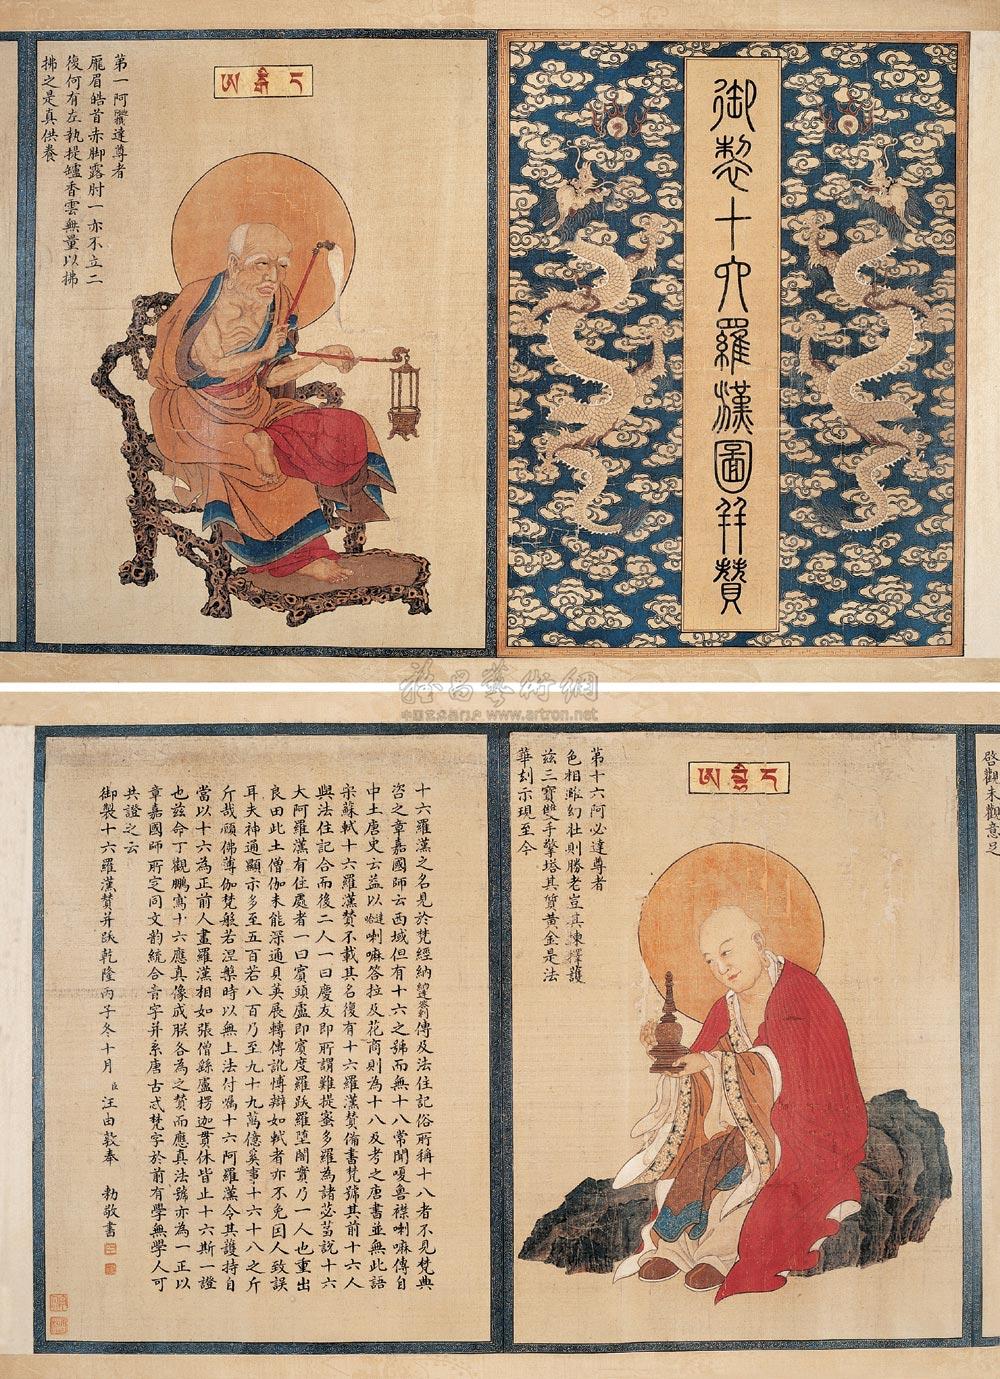 御製十六羅漢圖並贊
第一阿迎達尊者
厖眉皓首赤腳露肘一亦不立二
後何有左執提罏香雲無量以拂
拂之是真供養
啓觀未觀意足
第十六阿必達尊者
色相雖幻壯則勝老豈其揀擇護
茲三寶雙手擎塔其質黃金是法
華刻示現至今
十六羅漢之名見於梵經納傳及法住記俗所稱十八者不見梵典
咨之章嘉國師云西域但有十六之號而無十八常聞嗄魯襟喇嘛傳自
中土唐史云益以喇嘛答拉及花商則為十八及考之唐書並無此語
宋蘇軾十六羅漢贊不載其名復有十六羅漢贊備書梵號其前十六人
與法住記合而後二人一曰慶友即所謂難提蜜多羅為諸苾芻說十六
大阿羅漢有住處者一曰賓頭盧即賓度羅跋羅墮闍實乃一人也重出
良由此土僧伽未能深通貝英展轉傳訛愽辯如軾者亦不免因人致誤
耳夫神通顯示多至五百若八百乃至九十九萬億奚事十六十八之斤
斤哉顧佛薄伽梵般若涅槃時以無上法付囑十六阿羅漢令其護持自
當以十六為正前人畫羅漢相如張僧繇盧楞迦貫休皆止十六斯一證
也茲命丁觀鵬寫十六應真像成朕各為之贊而應真法號亦為一正以
章嘉國師所定同文韵統合音字并系唐古忒梵字於前有學無學人可
共證之云
御製十六羅漢贊并跋乾隆丙子冬十月 臣 汪由敦奉 勅敬書
中国艺术品门户 www.artron.net